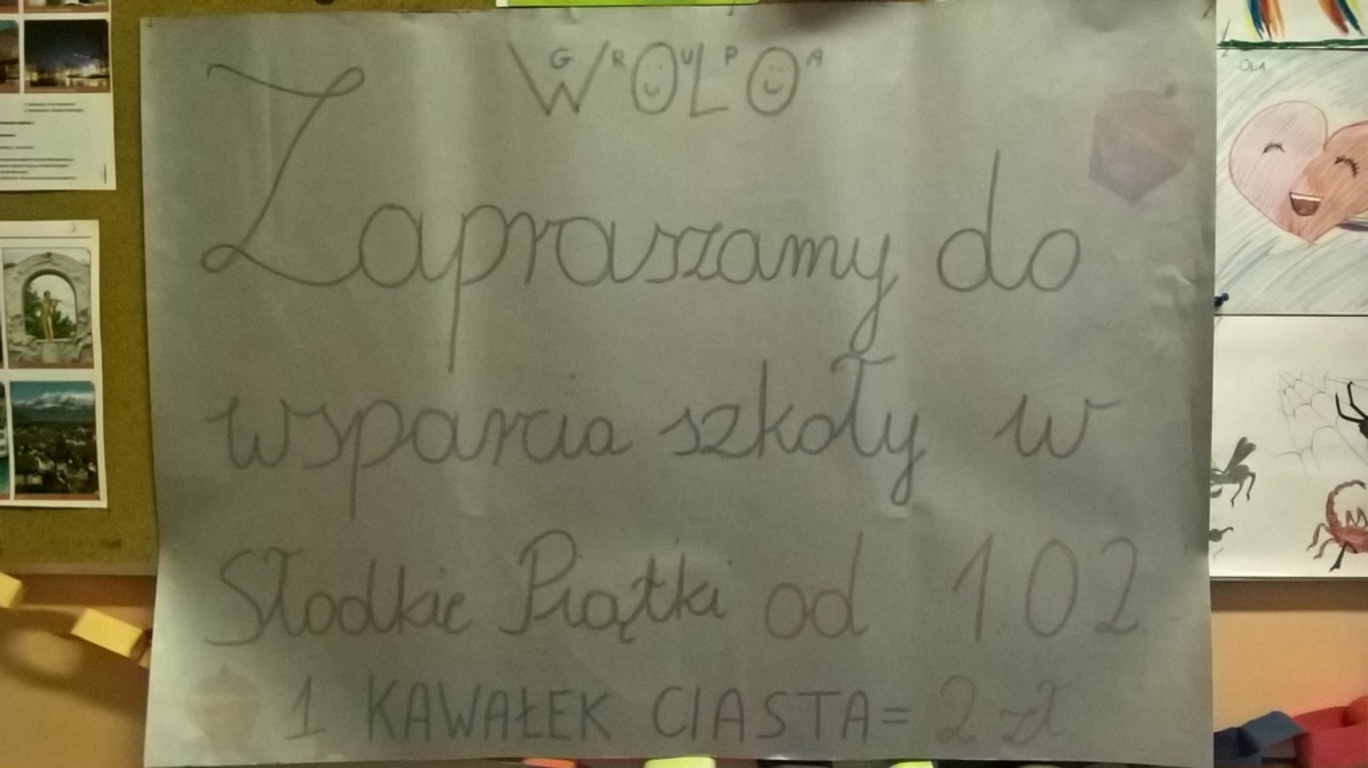 GRUPA
WOLO
Zapraszamy do
wsparcia szkoły w
Słodkie Piątki od 1 02
1 KAWAŁEK CIASTA = 2 zł
OLA